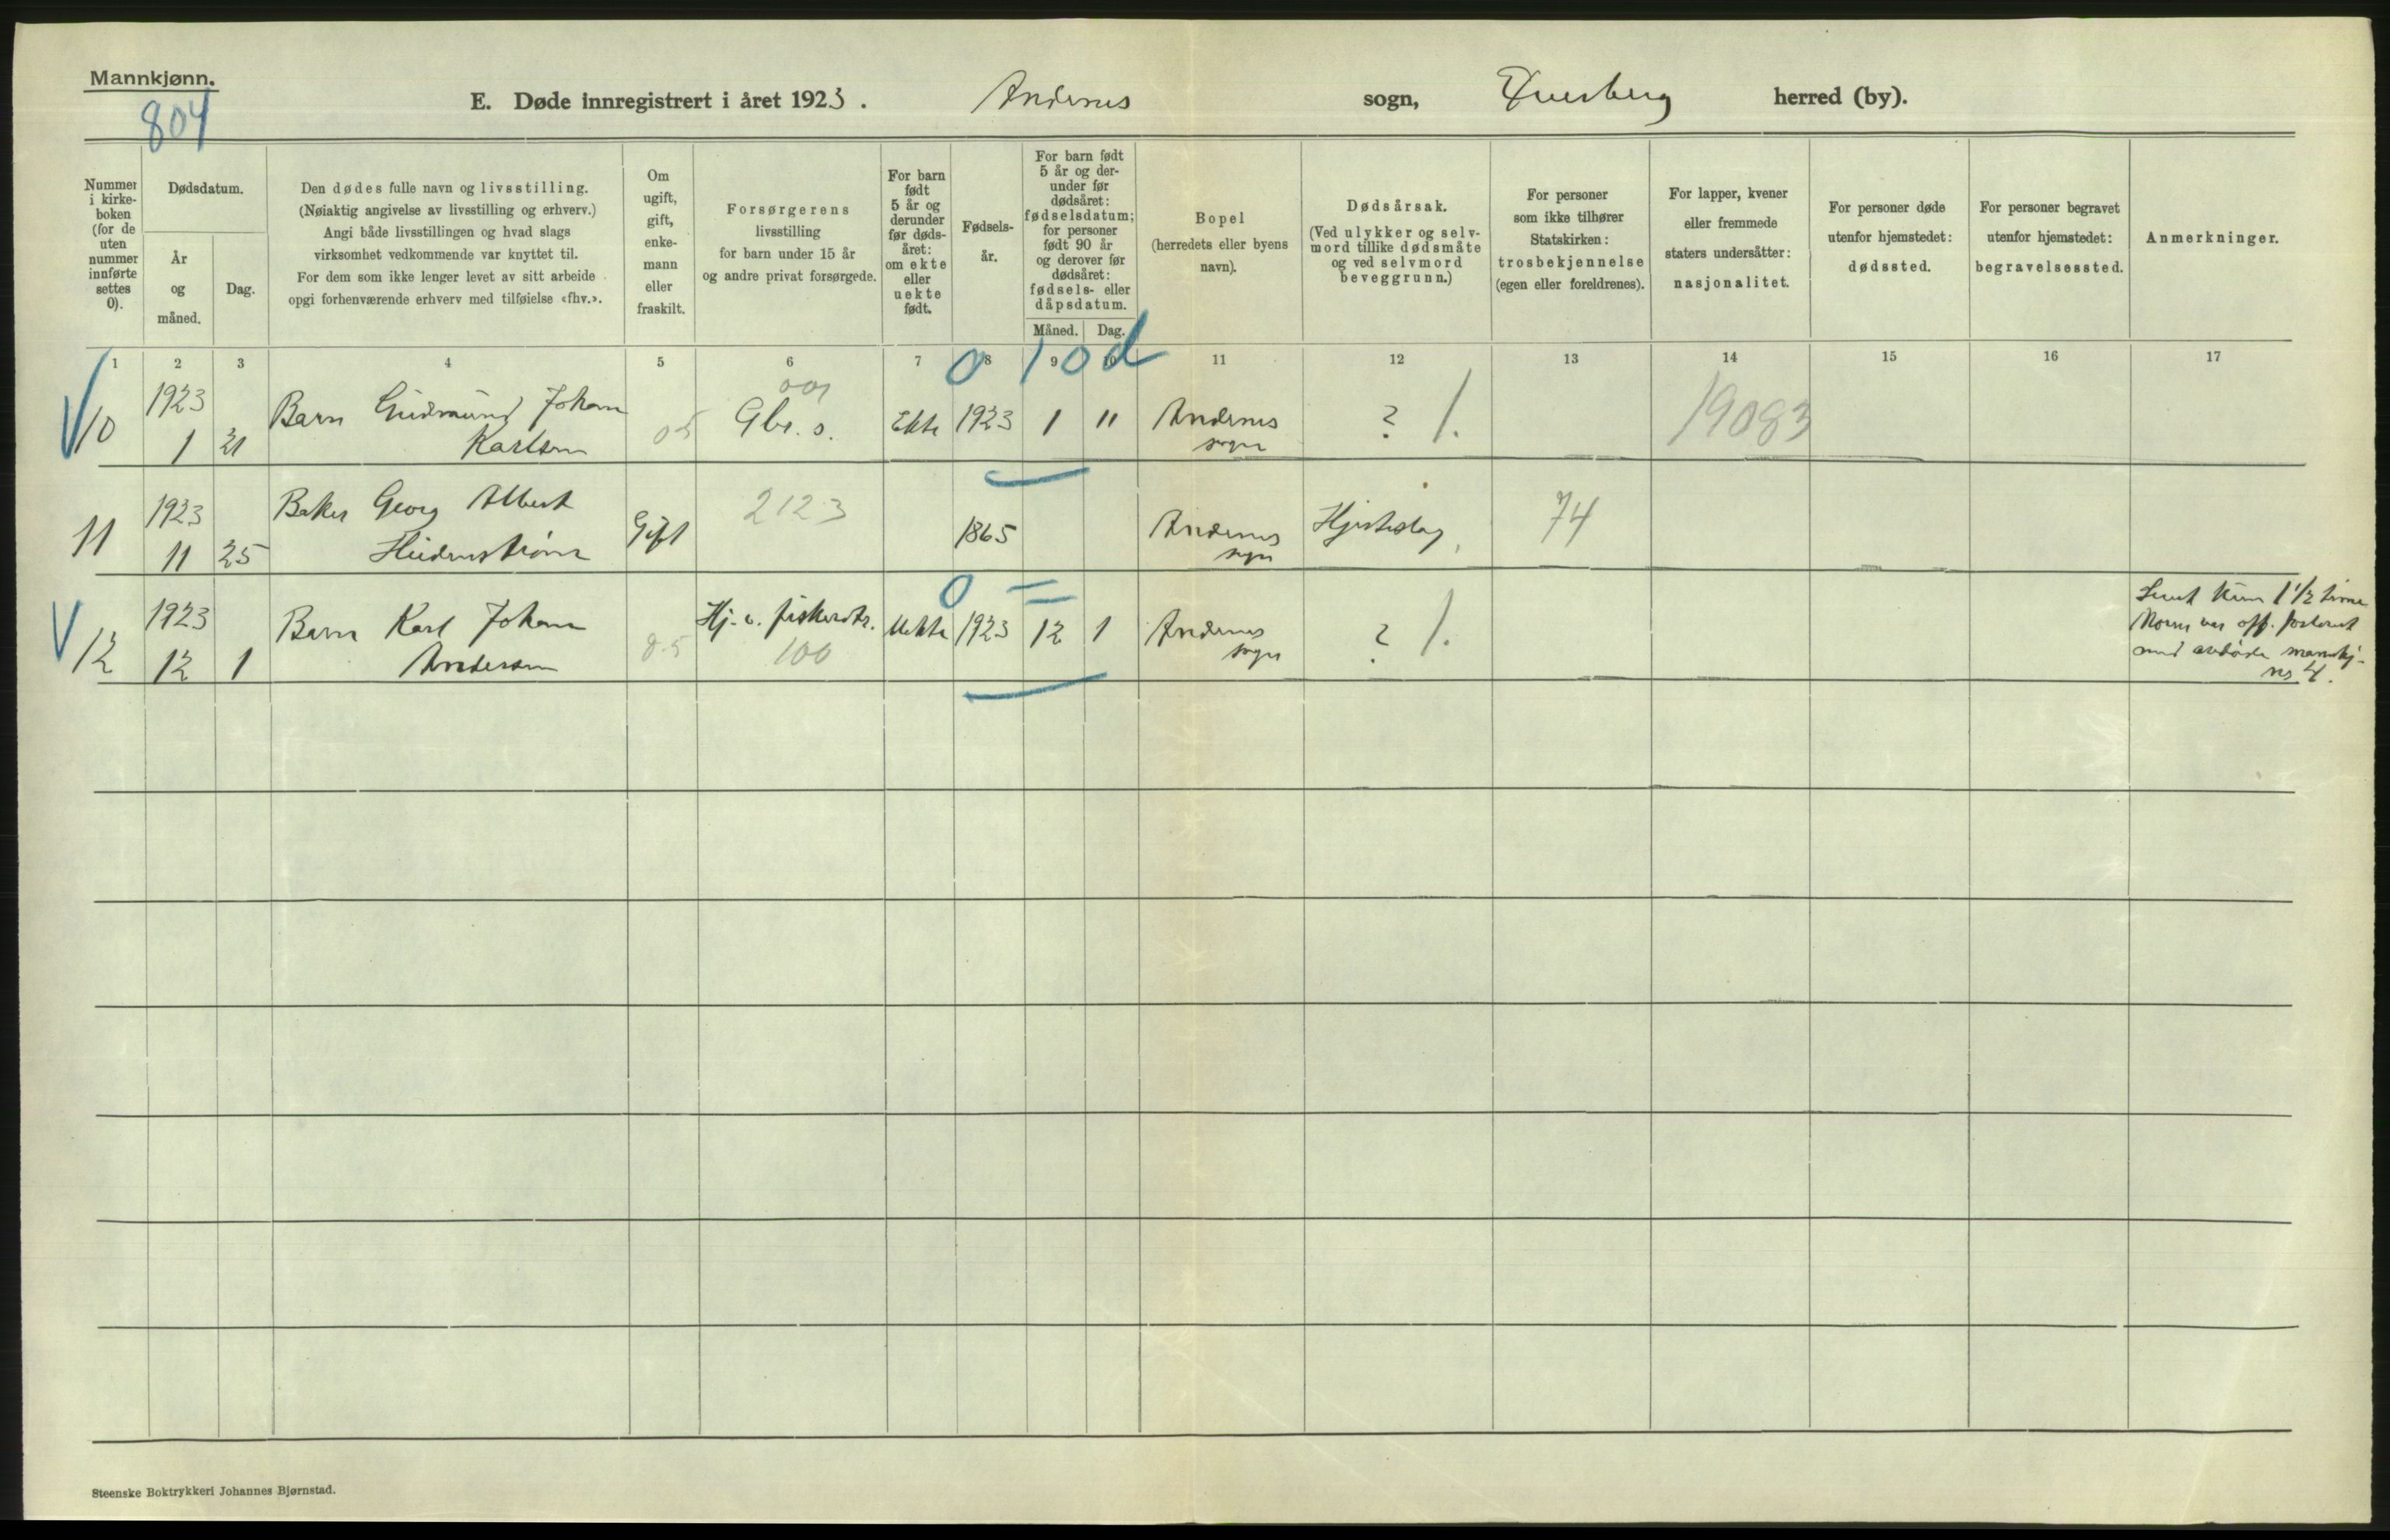 Mannkjønn.
804
E. Døde innregistrert i året 1923. Andenes sogn, Dverberg herred (by).
Nummer i kirkeboken (for de uten nummer innførte settes 0).
Dødsdatum.
År og måned.
Dag.
Den dødes fulle navn og livsstilling.
(Nøiaktig angivelse av livsstilling og erhverv.)
Angi både livsstillingen og hvad slags
virksomhet vedkommende var knyttet til.
For dem som ikke lenger levet av sitt arbeide
opgi forhenværende erhverv med tilføielse «fhv.».
Om ugift, gift, enkemann eller fraskilt.
Forsørgerens
livsstilling
for barn under 15 år
og andre privat forsørgede.
For barn født 5 år og derunder før dødsåret: om ekte eller uekte født.
Fødselsår.
For barn født 5 år og derunder før dødsåret: fødselsdatum; for personer født 90 år og derover før dødsåret: fødsels- eller dåpsdatum.
Måned. Dag.
Bopel
(herredets eller byens
navn).
Dødsårsak.
(Ved ulykker og selvmord tillike dødsmåte og ved selvmord beveggrunn.)
For personer
som ikke tilhører
Statskirken:
trosbekjennelse
(egen eller foreldrenes).
For lapper, kvener
eller fremmede
staters undersåtter:
nasjonalitet.
For personer døde
utenfor hjemstedet:
dødssted.
For personer begravet
utenfor hjemstedet:
begravelsessted.
Anmerkninger.
1 2 3 4 5 6 7 8 9 10 11 12 13 14 15 16 17
0 10 d
10 1923 1 21 Barn Gudmund Johan Karlsen 05 001 Gbr. s. Ekte 1923 1 11 Andenes sogn ? 1. 19083
11 1923 11 25 Baker Georg Albert Heidenstrøm Gift 2123 1865 Andenes sogn Hjerteslag, 74
0 =
12 1923 12 1 Barn Karl Johan Andersen 0.5 Hj. v. fiskerdr. 100 Uekte 1923 12 1 Andenes sogn ? 1.
Levet kun 1 1/2 time
Moren var off. forlovet
med avdøde mannkj.
nr 4.
Steenske Boktrykkeri Johannes Bjørnstad.